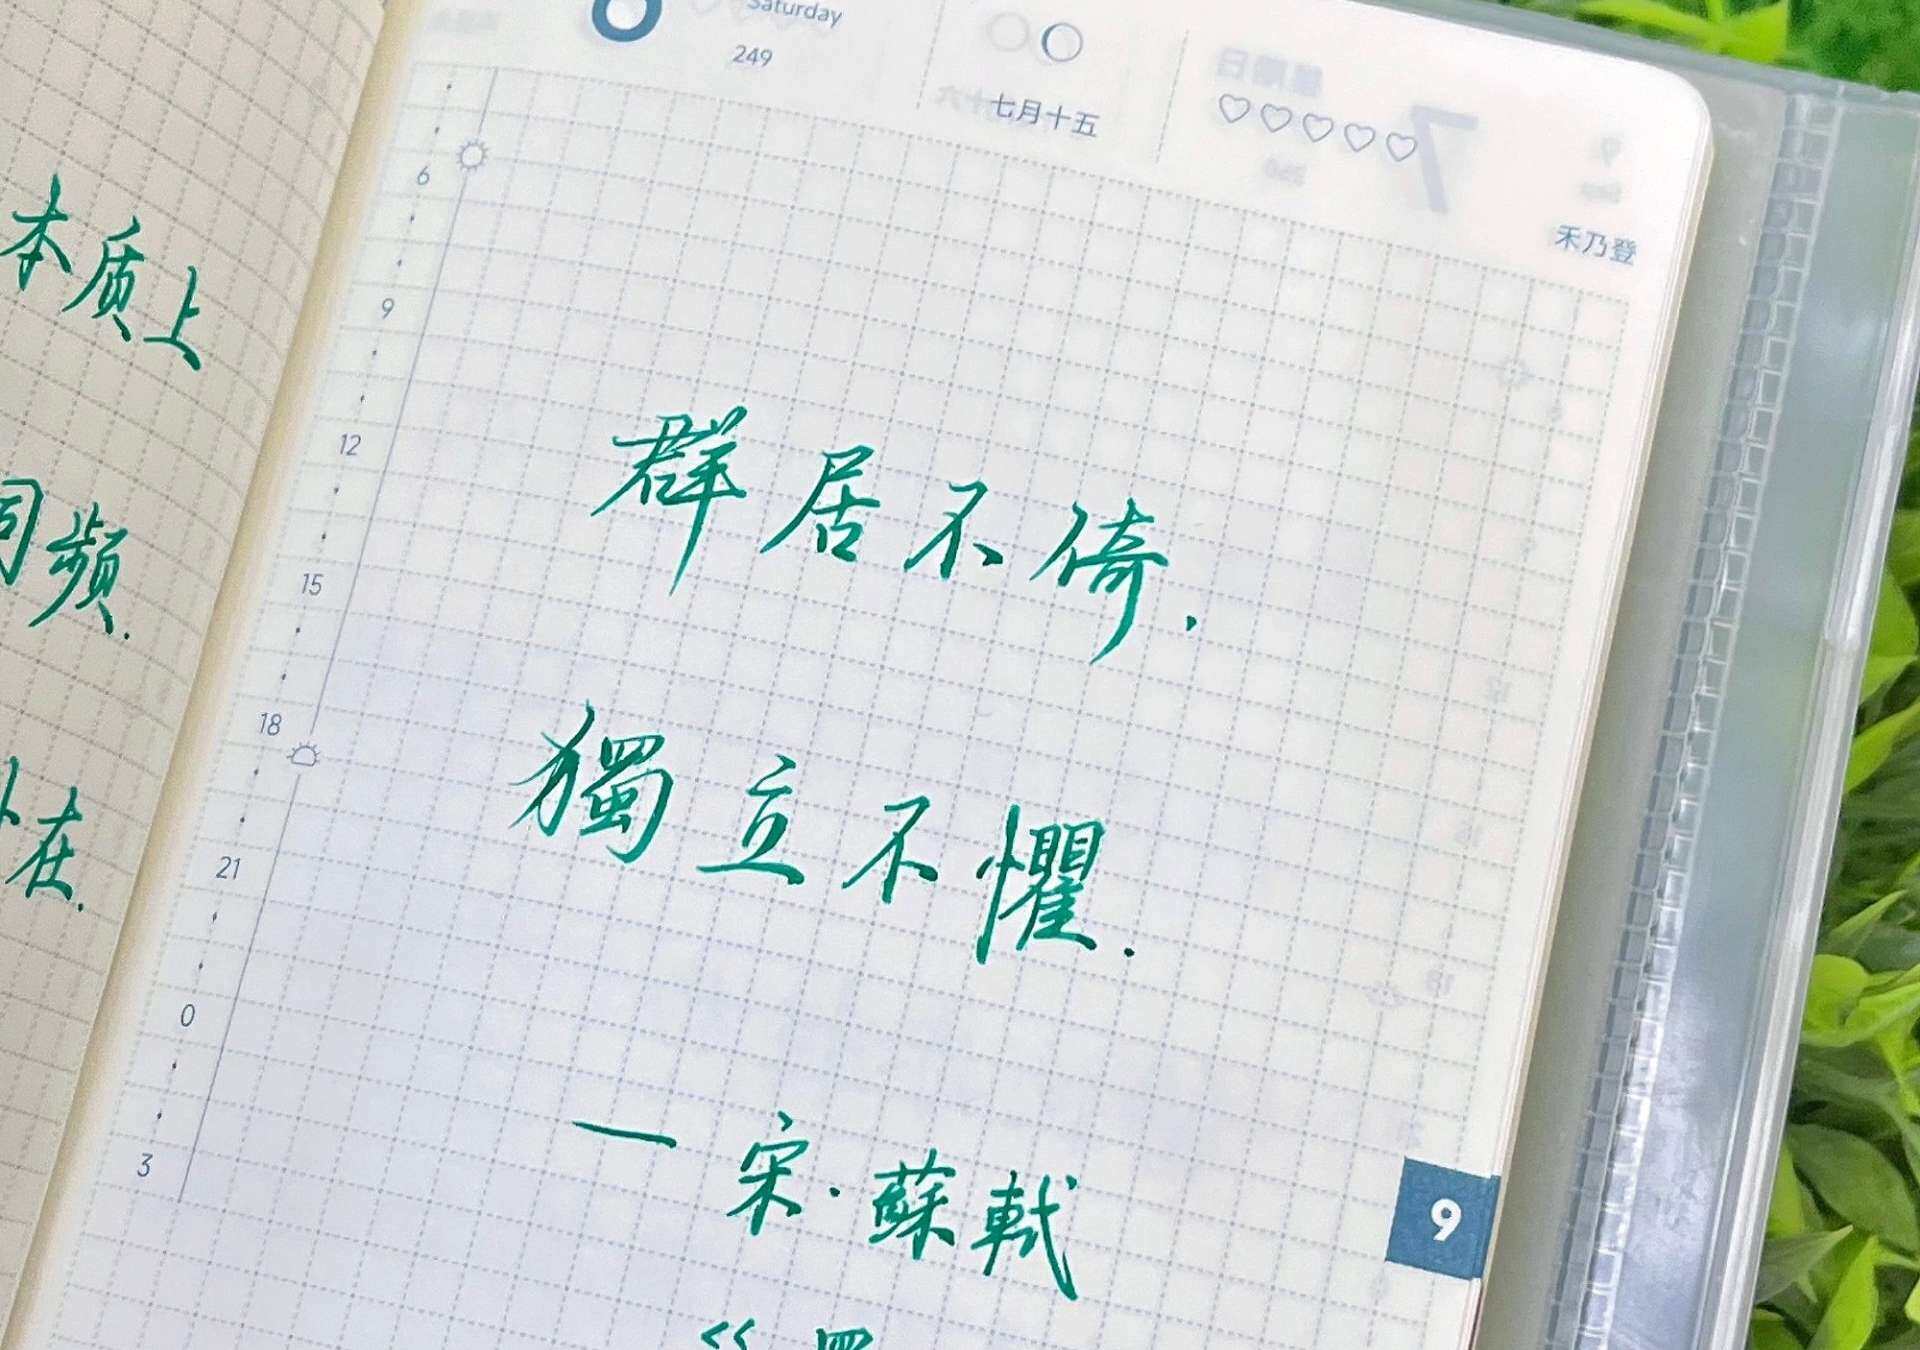 本质上
同频.
在.
6
Saturday
249
七月十五
禾乃登
6
9
12
15
18
21
0
3
群居不倚.
獨立不懼.
— 宋·蘇軾
9